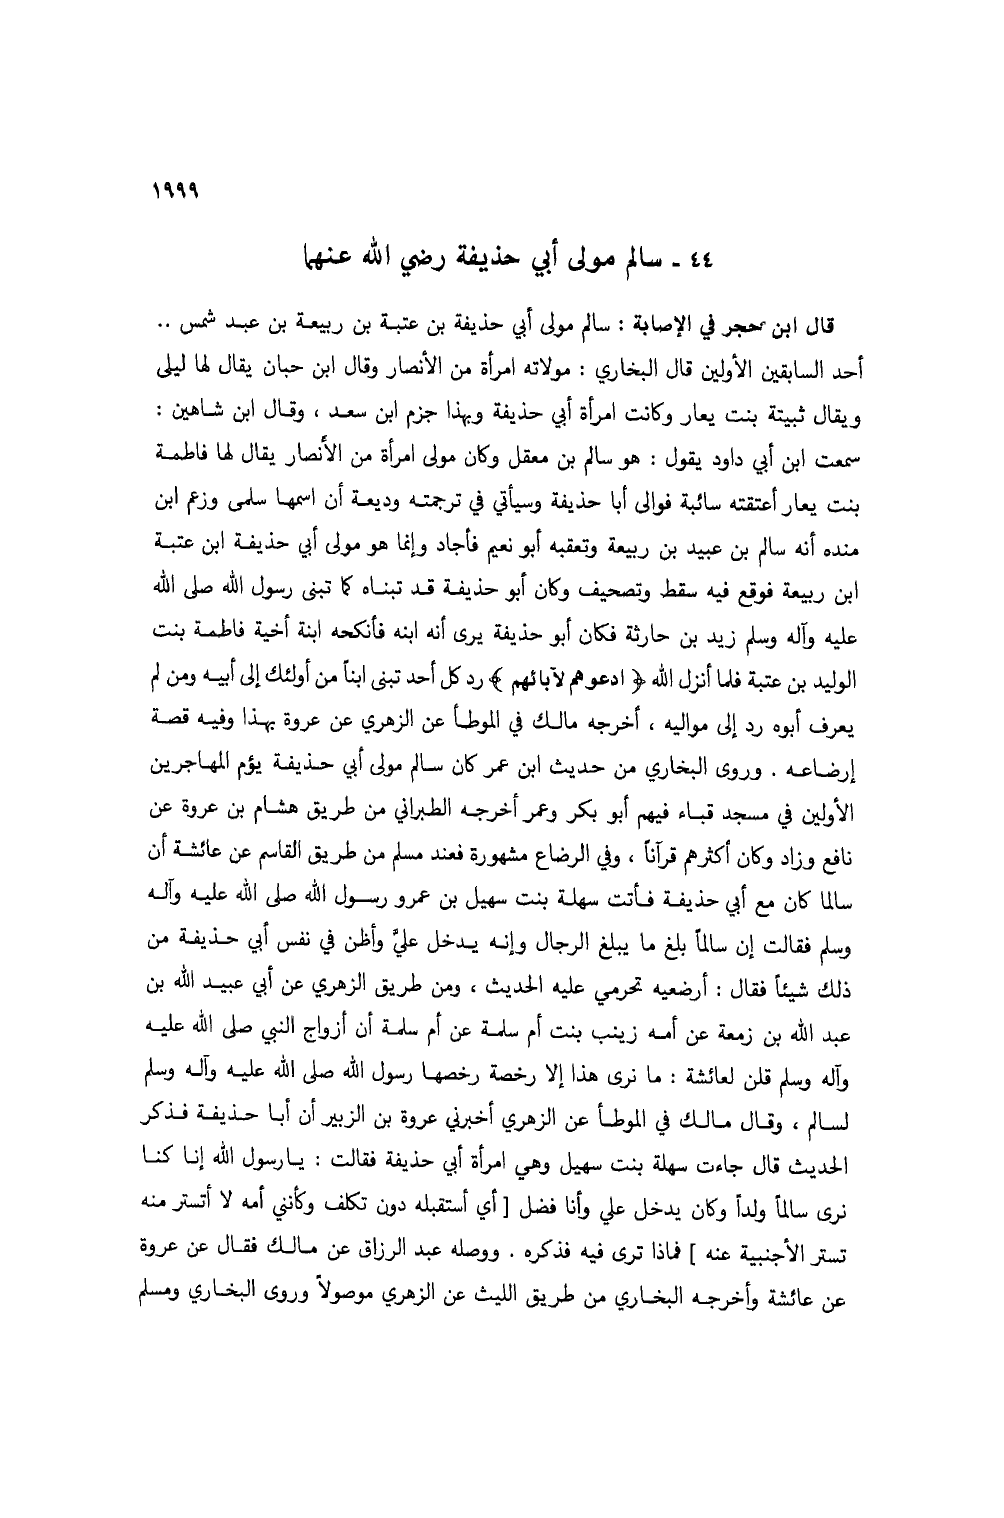 ١٩٩٩
٤٤ ـ سالم مولى أبي حذيفة رضي الله عنهما
قال ابن حجر في الإصابة : سالم مولى أبي حذيفة بن عتبة بن ربيعة بن عبد شمس ..
أحد السابقين الأولين قال البخاري : مولاته امرأة من الأنصار وقال ابن حبان يقال لها ليلى
ويقال ثبيتة بنت يعار وكانت امرأة أبي حذيفة وبهذا جزم ابن سعد ، وقال ابن شاهين :
سمعت ابن أبي داود يقول : هو سالم بن معقل وكان مولى امرأة من الأنصار يقال لها فاطمة
بنت يعار أعتقته سائبة فوالى أبا حذيفة وسيأتي في ترجمته وديعة أن اسمها سلمى وزعم ابن
منده أنه سالم بن عبيد بن ربيعة وتعقبه أبو نعيم فأجاد وإنما هو مولى أبي حذيفة ابن عتبة
ابن ربيعة فوقع فيه سقط وتصحيف وكان أبو حذيفة قد تبناه كما تبنى رسول الله صلى الله
عليه وآله وسلم زيد بن حارثة فكان أبو حذيفة يرى أنه ابنه فأنكحه ابنة أخية فاطمة بنت
الوليد بن عتبة فلما أنزل الله ﴿ ادعوهم لآبائهم ﴾ رد كل أحد تبنى ابناً من أولئك إلى أبيه ومن لم
يعرف أبوه رد إلى مواليه ، أخرجه مالك في الموطأ عن الزهري عن عروة بهذا وفيه قصة
إرضاعه . وروى البخاري من حديث ابن عمر كان سالم مولى أبي حذيفة يؤم المهاجرين
الأولين في مسجد قباء فيهم أبو بكر وعمر أخرجه الطبراني من طريق هشام بن عروة عن
نافع وزاد وكان أكثرهم قرآناً ، وفي الرضاع مشهورة فعند مسلم من طريق القاسم عن عائشة أن
سالما كان مع أبي حذيفة فأتت سهلة بنت سهيل بن عمرو رسول الله صلى الله عليه وآله
وسلم فقالت إن سالماً بلغ ما يبلغ الرجال وإنه يدخل عليَّ وأظن في نفس أبي حذيفة من
ذلك شيئاً فقال : أرضعيه تحرمي عليه الحديث ، ومن طريق الزهري عن أبي عبيد الله بن
عبد الله بن زمعة عن أمه زينب بنت أم سلمة عن أم سلمة أن أزواج النبي صلى الله عليه
وآله وسلم قلن لعائشة : ما نرى هذا إلا رخصة رخصها رسول الله صلى الله عليه وآله وسلم
لسالم ، وقال مالك في الموطأ عن الزهري أخبرني عروة بن الزبير أن أبا حذيفة فذكر
الحديث قال جاءت سهلة بنت سهيل وهي امرأة أبي حذيفة فقالت : يا رسول الله إنا كنا
نرى سالماً ولداً وكان يدخل علي وأنا فضل [ أي أستقبله دون تكلف وكأنني أمه لا أتستر منه
تستر الأجنبية عنه ] فماذا ترى فيه فذكره . ووصله عبد الرزاق عن مالك فقال عن عروة
عن عائشة وأخرجه البخاري من طريق الليث عن الزهري موصولاً وروى البخاري ومسلم